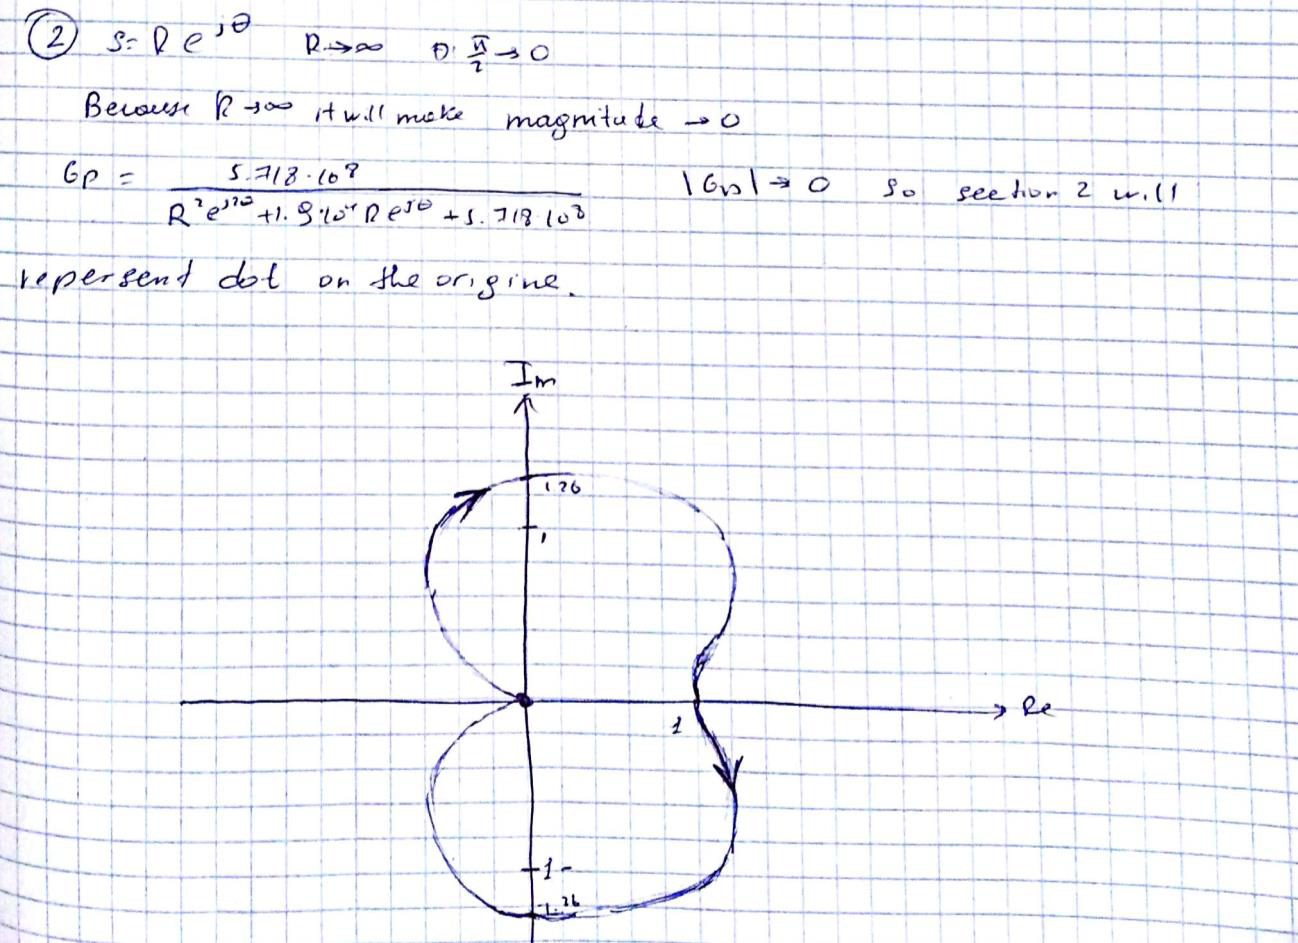 ② S= R e^jθ R→∞ θ: π/2 → 0
Because R→∞ it will make magnitude → 0
Gp = 5.718·10⁸ / R²e^j2θ +1.9·10⁴ R e^jθ +5.718·10⁸ |Gp| → 0 so section 2 will
repersent dot on the origine.
Im
1.26
1
Re
1
1-
1.26